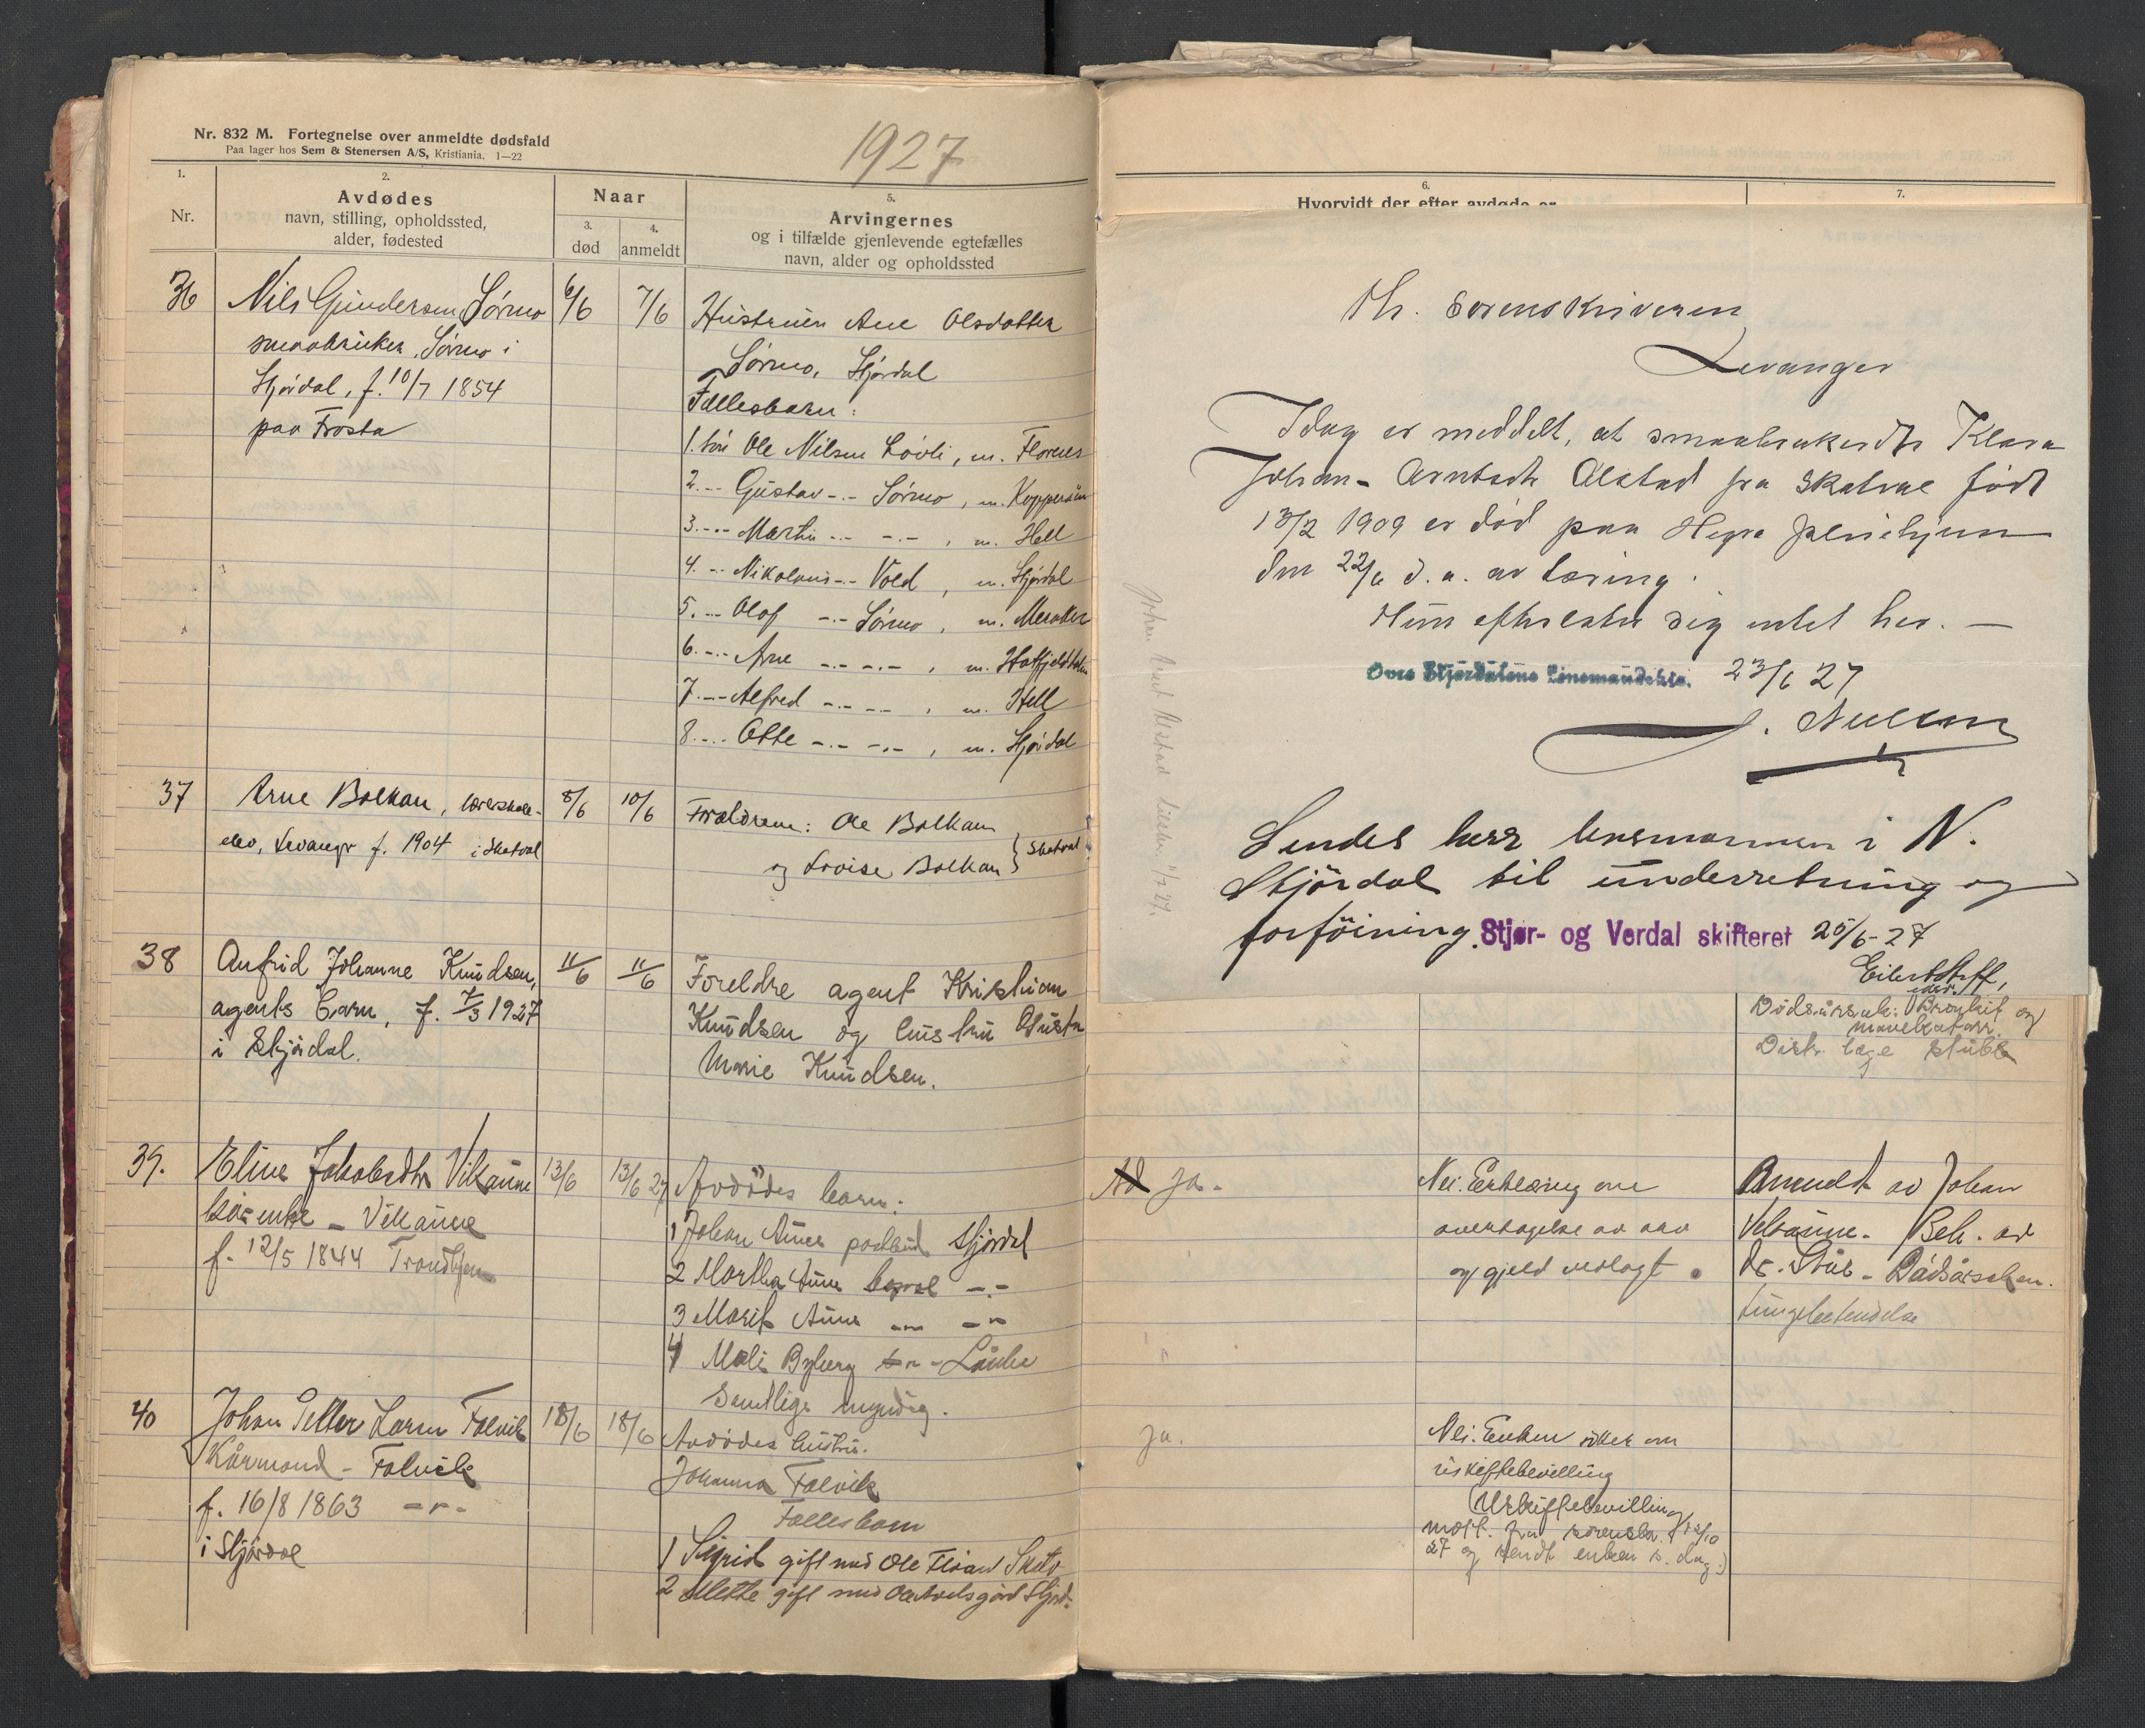 Nr. 832 M. Fortegnelse over anmeldte dødsfald
Paa lager hos Sem & Stenersen A/S, Kristiania. 1—22
1927
1.
Nr.
2.
Avdødes
navn, stilling, opholdssted,
alder, fødested
Naar
3.
død
4.
anmeldt
5.
Arvingernes
og i tilfælde gjenlevende egtefælles
navn, alder og opholdssted
36
Nils Gundersen Sørmo
smaabruker, Sørmo i
Stjørdal, f. 10/7 1854
paa Frosta
6/6
7/6
Hustruen Ane Olsdatter
Sørmo, Stjørdal
Fællesbarn:
1. søn Ole Nilsen Løvli, m. Flornes
2. -"- Gustav -"- Sørmo, m. Kopperaaen
3. -"- Martin -"- -"-, m. Hell
4. -"- Nikolaus -"- Vold, m. Stjørdal
5. -"- Olof -"- Sørmo, m. Meraker
6. -"- Arne -"- -"-, m. Hatfjelddalen
7. -"- Alfred -"- -"-, m. Hell
8. -"- Otte -"- -"-, m. Stjørdal
37
Arne Bolkan, lærerskole-
elev, Levanger f. 1904 i Skatval
8/6
10/6
Forældrene: Ole Bolkan
og Lovise Bolkan } Skatval
38
Anfrid Johanne Knudsen,
agents barn, f. 7/3 1927
i Stjørdal.
11/6
11/6
Foreldre agent Kristian
Knudsen og hustru Gusta
Marie Knudsen.
39.
Eline Jakobsdtr Vikaune
kårenke - Vikaune
f. 12/5 1844 Trondhjem
13/6
13/6 27
Avdödes barn:
1 Johan Aune postbud Stjørdal
2 Martha Aune -"-
3 Marit Aune -"- -"-
4 Mali Byberg -"- Lånke
Samtlige myndig.
40
Johan Petter Larsen Følvik
Kårmand - Følvik
f. 16/8 1863 -"-
i Stjørdal
18/6
18/6
Avdødes hustru.
Johanna Følvik
Fællesbarn
1 Sigrid gift med Ole Fløan Skatv
2 Mette gift med Ole Stjørd.
6.
Hvorvidt der efter avdøde er
7.
Hr. Sorenskriveren
Levanger
Idag er meddelt, at smaabrukerdtr Klara
Johan- Arntsdtr Alstad fra Skatval født
13/2 1909 er død paa Hegra pleiehjem
den 22/6 d. a. av tæring.
Hun efterlater sig intet her. —
Øvre Stjørdalens Lensmandskt. 23/6 27
Sendes herr lensmannen i N.
Stjördal til underretning og
forföining. Stjør- og Verdal skifteret 25/6-27
Eilert
Johan Alstad 27.
Dödsårsak: Bronkit og
mavekatarr.
Distr. læge Stub
Ad Ja.
Nei. Erklæring om
overtagelse av arv
og gjeld vedlagt.
Anmeldt av Johan
Vikaune. Beh. av
dr. Stub - Dödsårsaken.
Lungebetendelse
Ja.
Nei. Enken søker om
uskiftebevilling
(Uskiftebevilling
mott. fra sorenskr. 12/10
27 og sendt enken s. dag.)